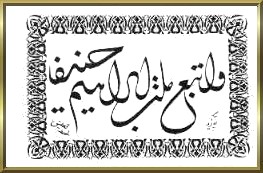 واتبع ملة ابراهيم حنيفا